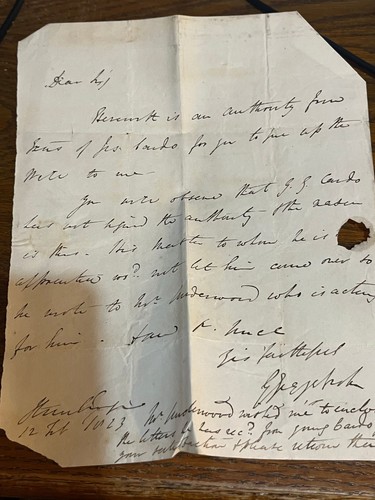 Dear Sir
Herewith is an authority from
of Jas: Cardo for you to give up the
to me.
You will observe that G G Cardo
has not signed the authority & the reason
is this. His Master to whom he is
apprenticed wod. not let him come over so
he wrote to Mr. Underwood who is acting
for him.
Yrs faithfully
12 Feb
Mr. Underwood wished me to enclose
the letters he has recd. from young Cardo
your satisfaction & please return them